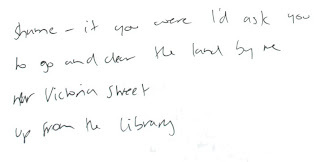 Shame - if you were I'd ask you
to go and clear the land by me
nr Victoria Street
up from the library